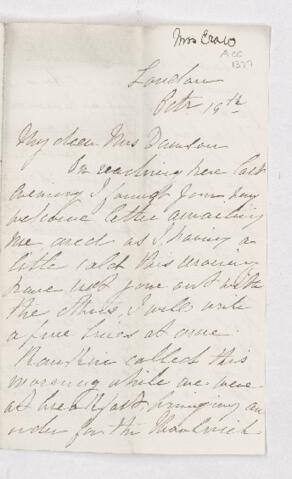 Mrs Craw
ACC
1377
London
Octr 19th
My dear Mrs Dawson
On reaching here last
evening I found your very
welcome letter awaiting
me and as I having a
little cold this morning
have not gone out with
the others, I will write
a few lines at once.
Rankin called this
morning while we were
at breakfast, bringing an
order for the Woolwich